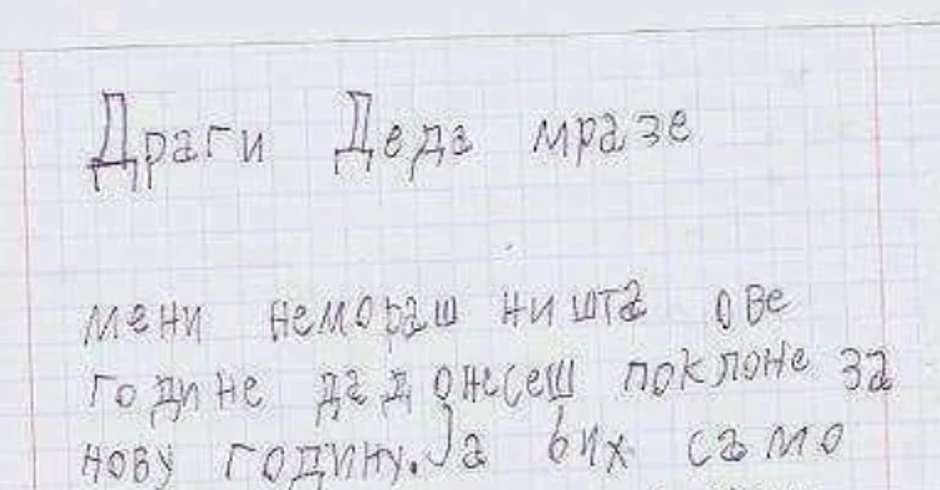 Драги Деда мразе
мени немораш ништа ове
године да донесеш поклоне за
нову годину. Ја бих само